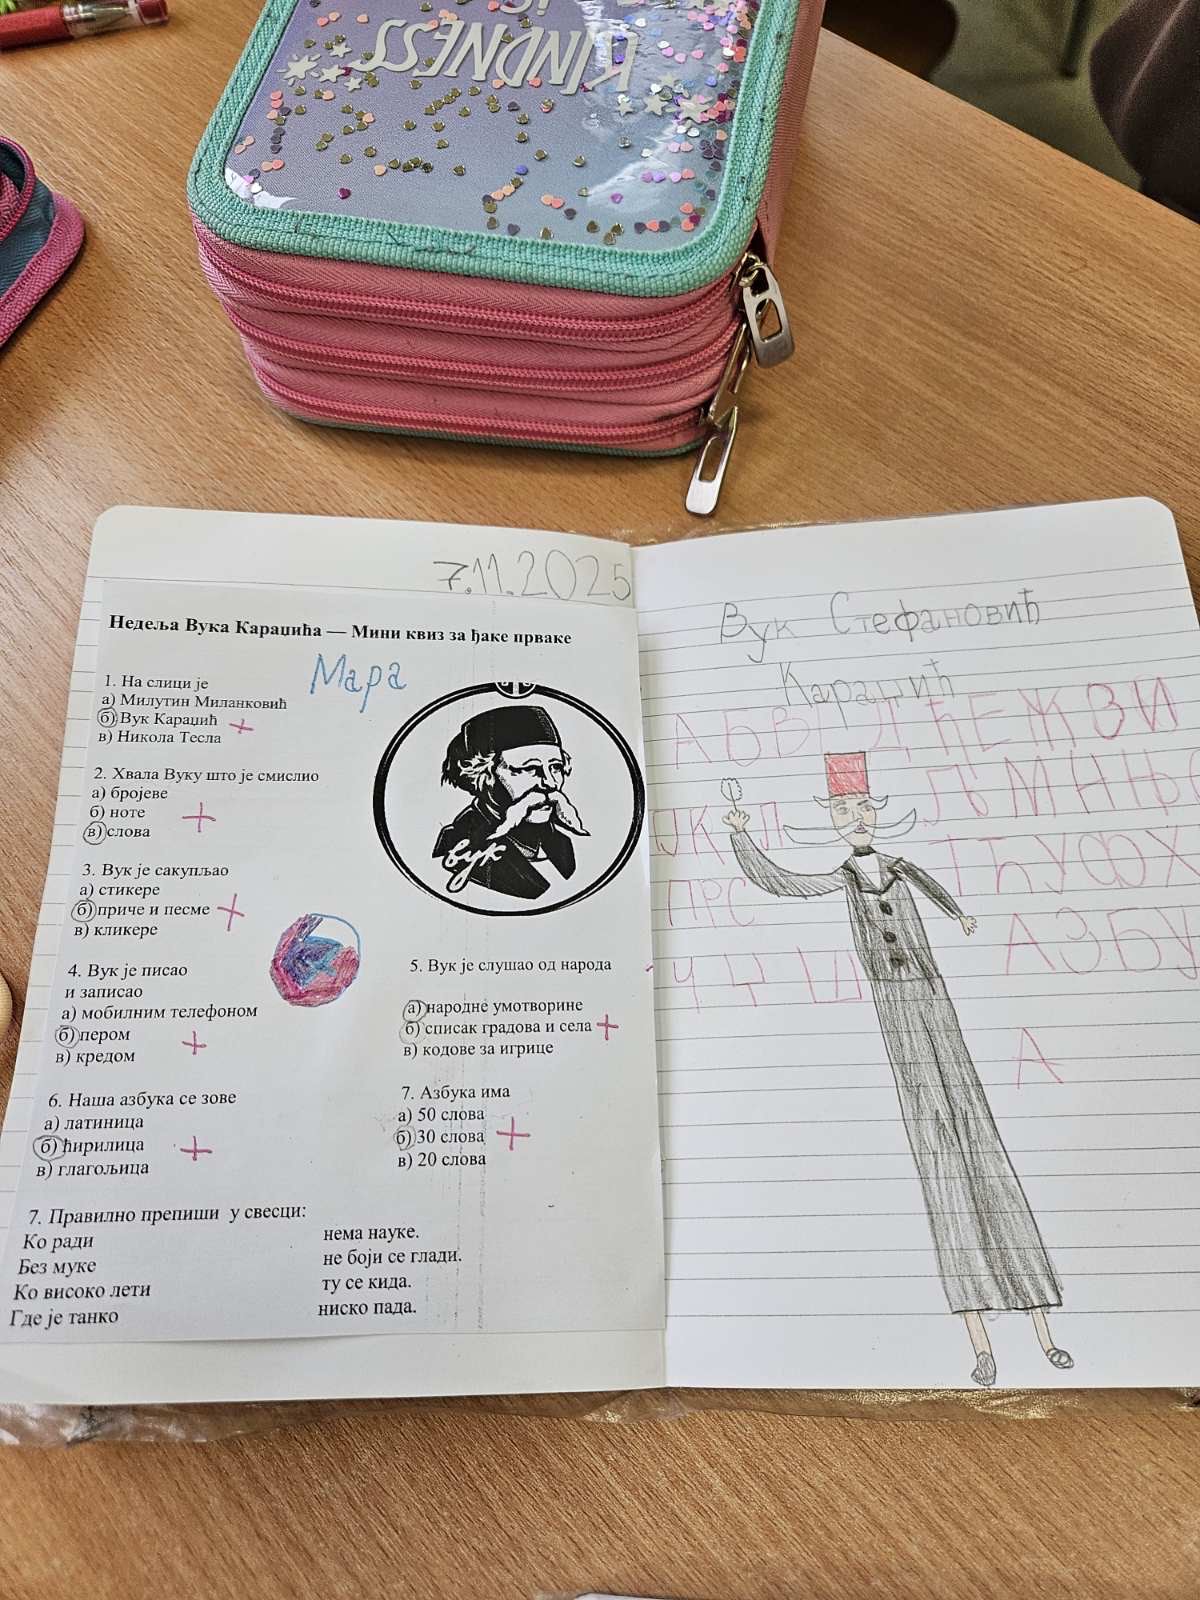 KINDNESS
7.11.2025
Недеља Вука Караџића — Мини квиз за ђаке прваке
Мара
1. На слици је
а) Милутин Миланковић
б) Вук Караџић
в) Никола Тесла
2. Хвала Вуку што је смислио
а) бројеве
б) ноте
в) слова
3. Вук је сакупљао
а) стикере
б) приче и песме
в) кликере
4. Вук је писао
и записао
а) мобилним телефоном
б) пером
в) кредом
вук
5. Вук је слушао од народа
а) народне умотворине
б) списак градова и села
в) кодове за игрице
6. Наша азбука се зове
а) латиница
б) ћирилица
в) глагољица
7. Азбука има
а) 50 слова
б) 30 слова
в) 20 слова
7. Правилно препиши у свесци:
Ко ради нема науке.
Без муке не боји се глади.
Ко високо лети ту се кида.
Где је танко ниско пада.
Вук Стефановић
Караџић
А Б В Г Д Ђ Е Ж З И
Ј К Л Љ М Н Њ
П Р С Т Ћ У Ф Х
Ч Џ Ш
АЗБУ
А